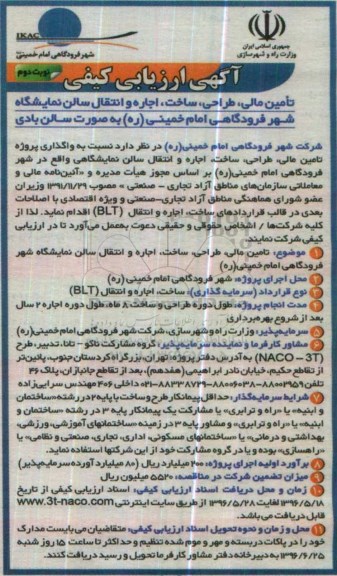 IKAC
شهر فرودگاهی امام خمینی
جمهوری اسلامی ایران
وزارت راه و شهرسازی
آگهی ارزیابی کیفی
نوبت دوم
تأمین مالی، طراحی، ساخت، اجاره و انتقال سالن نمایشگاه
شهر فرودگاهی امام خمینی (ره) به صورت سالن بادی
شرکت شهر فرودگاهی امام خمینی(ره) در نظر دارد نسبت به واگذاری پروژه
تامین مالی، طراحی، ساخت، اجاره و انتقال سالن نمایشگاهی واقع در شهر
فرودگاهی امام خمینی(ره) بر اساس مجوز هیأت مدیره و «آئین‌نامه مالی و
معاملاتی سازمان‌های مناطق آزاد تجاری - صنعتی » مصوب ۱۳۹۱/۱۱/۲۹ وزیران
عضو شورای هماهنگی مناطق آزاد تجاری-صنعتی و ویژه اقتصادی با اصلاحات
بعدی در قالب قراردادهای ساخت، اجاره و انتقال (BLT) اقدام نماید. لذا از
کلیه شرکت‌ها / اشخاص حقوقی و حقیقی دعوت بعمل می‌آورد تا در ارزیابی
کیفی شرکت نمایند.
۱ موضوع: تامین مالی، طراحی، ساخت، اجاره و انتقال سالن نمایشگاه شهر
فرودگاهی امام خمینی(ره)
۲ محل اجرای پروژه: شهر فرودگاهی امام خمینی (ره)
۳ نوع قرارداد (سرمایه گذاری): ساخت، اجاره و انتقال (BLT)
۴ مدت انجام پروژه: طول دوره طراحی و ساخت ۸ ماه، طول دوره اجاره ۲ سال
بعد از شروع بهره‌برداری
۵ سرمایه‌پذیر: وزارت راه و شهرسازی، شرکت شهر فرودگاهی امام خمینی(ره)
۶ مشاور کارفرما و نماینده سرمایه‌پذیر: گروه مشارکت ناکو - تانا، تدبیر، طرح
(NACO – 3T) به آدرس دفتر پروژه: تهران، بزرگراه کردستان جنوب، پائین‌تر
از تقاطع حکیم، خیابان نادر ابراهیمی (هفدهم)، بعد از تقاطع جانبازان، پلاک ۴۶
تلفن ۸۸۰۰۲۹۵۹-۸۸۰۰۶۰۳۸-۸۸۳۳۸۷۲۹-۰۲۱ داخلی ۴۰۶ مهندس سرایی‌زاده
۷ شرایط سرمایه‌گذار: حداقل پیمانکار طرح و ساخت با پایه ۲ در رشته «ساختمان
و ابنیه» یا «راه و ترابری» یا مشارکت یک پیمانکار پایه ۳ در رشته «ساختمان و
ابنیه» یا «راه و ترابری» و مشاور پایه ۳ در زمینه «ساختمانهای آموزشی، ورزشی،
بهداشتی و درمانی» یا «ساختمانهای مسکونی، اداری، تجاری، صنعتی و نظامی» یا
«راهسازی» بوده و یا در گروه مشارکت خود از این شرکتها استفاده نماید.
۸ برآورد اولیه اجرای پروژه: ۲۰۰ میلیارد ریال (۸۰ میلیارد آورده سرمایه‌پذیر)
۹ میزان تضمین شرکت در مناقصه: ۵۵۲۰ میلیون ریال
۱۰ زمان و محل دریافت اسناد ارزیابی کیفی: اسناد ارزیابی کیفی از تاریخ
۱۳۹۶/۵/۱۸ لغایت ۱۳۹۶/۵/۲۸ از طریق سایت اینترنتی www.3t-naco.com
قابل دریافت می‌باشد.
۱۱ محل و زمان و نحوه تحویل اسناد ارزیابی کیفی: متقاضیان می‌بایست مدارک
خود را در پاکات دربسته و مهر و موم شده تنظیم و حداکثر تا ساعت ۱۵ روز شنبه
۱۳۹۶/۶/۲۵ به دبیرخانه دفتر مشاور کارفرما تحویل و رسید دریافت کنند.